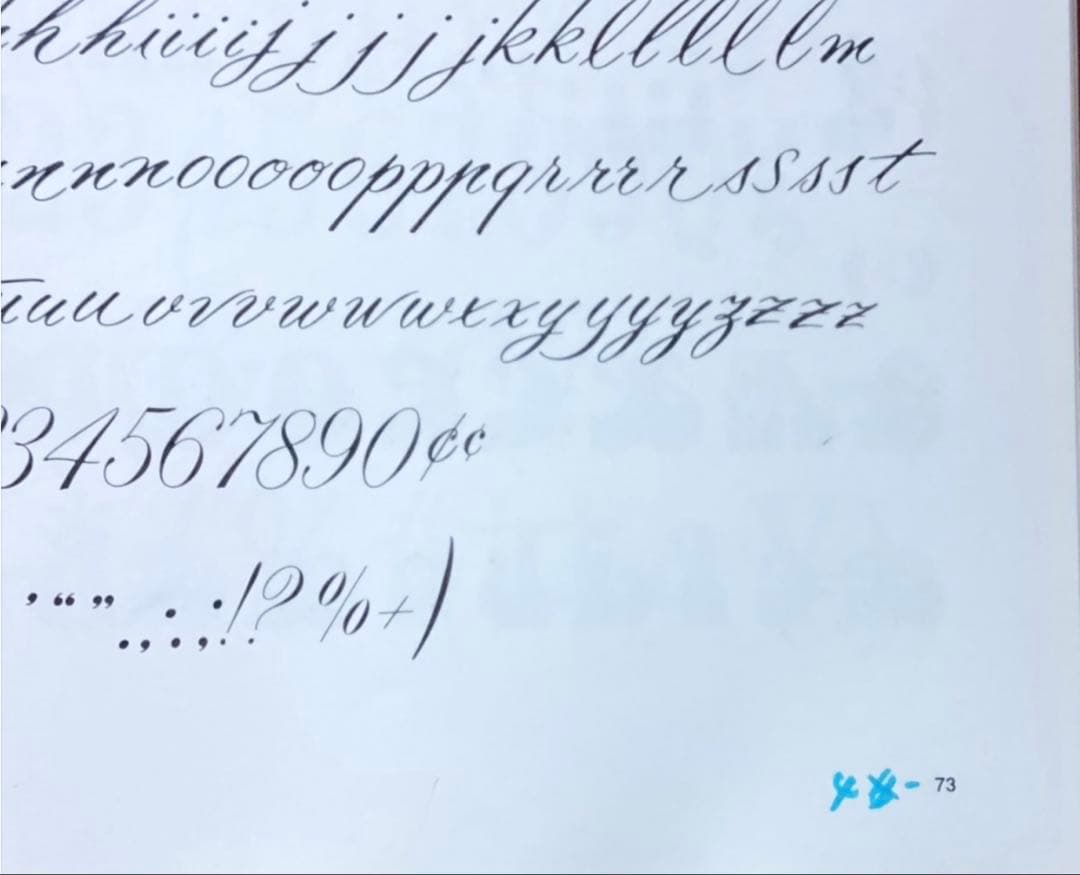 hhiiiijjjjjjkklllllm
nnnnooooooopppqrrrrssssst
uuuvvvwwwwxxyyyyzzzz
34567890¢¢
’“”.,:;!?%+)
73